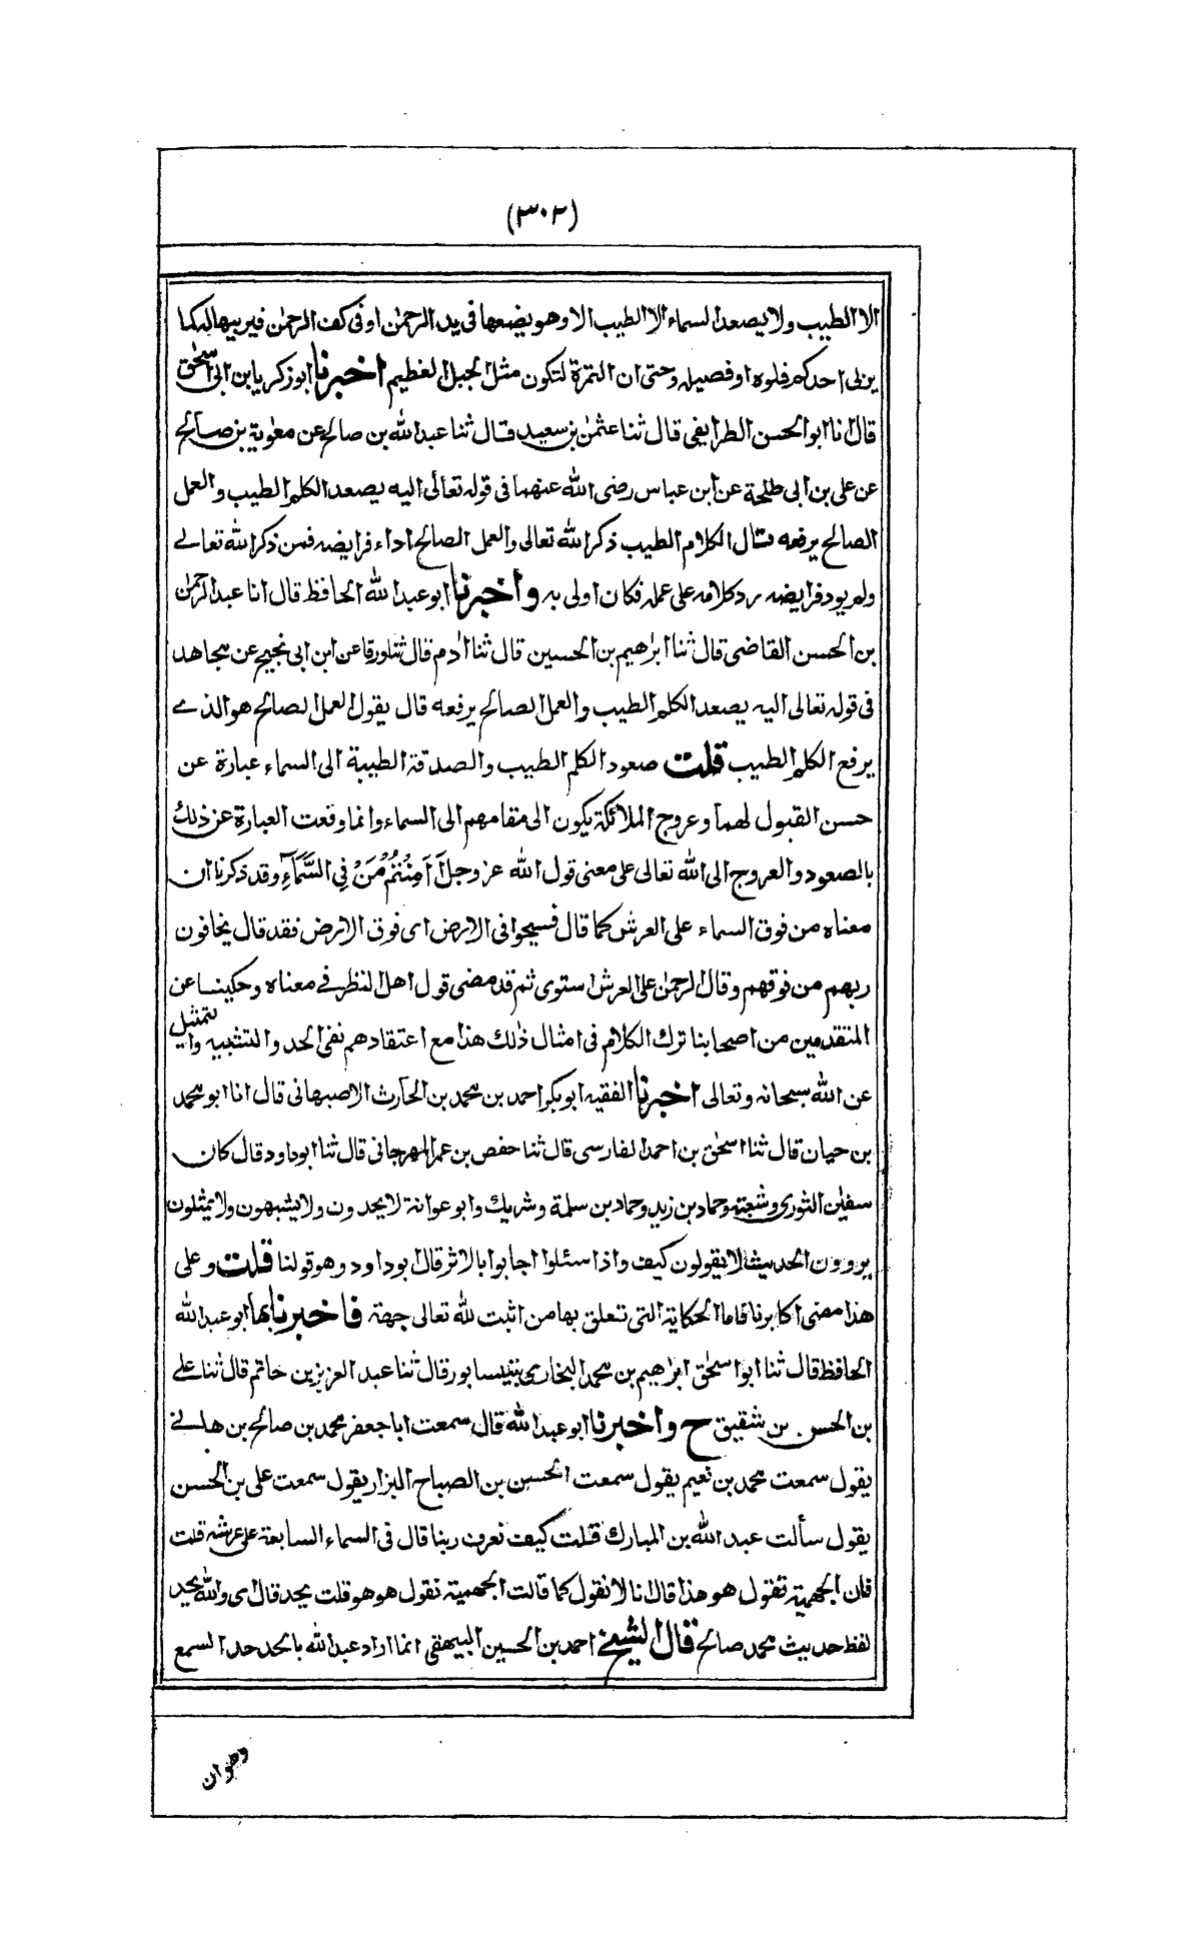 (٣٠٢)
الا الطيب ولا يصعد السماء الا الطيب الا وهو يضعها في يد الرحمٰن او في كف الرحمٰن فيربيها له كما
يربى احدكم فلوه او فصيله وحتى ان التمرة لتكون مثل الجبل العظيم اخبرنا ابو زكريا بن ابى اسحٰق
قال انا ابو الحسن الطرايفى قال ثنا عثمٰن بن سعيد قال ثنا عبد الله بن صالح عن معٰوية بن صالح
عن على بن ابى طلحة عن ابن عباس رضى الله عنهما فى قوله تعالى اليه يصعد الكلم الطيب والعمل
الصالح يرفعه قال الكلام الطيب ذكر الله تعالى والعمل الصالح اداء فرايضه فمن ذكر الله تعالے
ولم يود فرايضه رد كلامه على عمله فكان اولى به واخبرنا ابو عبد الله الحافظ قال انا عبد الرحمٰن
بن الحسن القاضى قال ثنا ابرٰهيم بن الحسين قال ثنا اٰدم قال ثنا ورقا عن ابن ابى نجيح عن مجاهد
فى قوله تعالى اليه يصعد الكلم الطيب والعمل الصالح يرفعه قال يقول العمل الصالح هو الذے
يرفع الكلم الطيب قلت صعود الكلم الطيب والصدقة الطيبة الى السماء عبارة عن
حسن القبول لهما وعروج الملائكة يكون الى مقامهم الى السماء وانما وقعت العبارة عن ذلك
بالصعود والعروج الى الله تعالى على معنى قول الله عز وجل أَأَمِنْتُمْ مَنْ فِي السَّمَآءِ وقد ذكرنا ان
معناه من فوق السماء على العرش كما قال فسيحوا فى الارض اى فوق الارض فقد قال يخافون
ربهم من فوقهم وقال الرحمٰن على العرش استوى ثم قد مضى قول اهل النظر فے معناه وحكينا عن
المتقدمين من اصحابنا ترك الكلام فى امثال ذلك هذا مع اعتقادهم نفى الحد والتشبيه والتمثيل
عن الله سبحانه وتعالى اخبرنا الفقيه ابو بكر احمد بن محمد بن الحارث الاصبهانى قال انا ابو محمد
بن حيان قال ثنا اسحٰق بن احمد الفارسى قال ثنا حفص بن عمر المهرجانى قال ثنا ابو داود قال كان
سفيٰن الثورى وشعبة وحماد بن زيد وحماد بن سلمة وشريك وابو عوانة لا يحدون ولا يشبهون ولا يمثلون
يروون الحديث لا يقولون كيف واذا سئلوا اجابوا بالاثر قال ابو داود وهو قولنا قلت وعلى
هذا مضى اكابرنا فاما الحكاية التى تتعلق بها من اثبت لله تعالى جهة فاخبرنا بها ابو عبد الله
الحافظ قال ثنا ابو اسحٰق ابرٰهيم بن محمد البخارى بنيسابور قال ثنا عبد العزيز بن حاتم قال ثنا علے
بن الحسن بن شقيق ح واخبرنا ابو عبد الله قال سمعت ابا جعفر محمد بن صالح بن هانے
يقول سمعت محمد بن نعيم يقول سمعت الحسن بن الصباح البزار يقول سمعت على بن الحسن
يقول سألت عبد الله بن المبارك قلت كيف نعرف ربنا قال فى السماء السابعة على عرشه قلت
فان الجهمية تقول هو هذا قال انا لا نقول كما قالت الجهمية نقول هو هو قلت بحد قال اى والله بحد
لفظ حديث محمد صالح قال الشيخ احمد بن الحسين البيهقى انما اراد عبد الله بالحد حد السمع